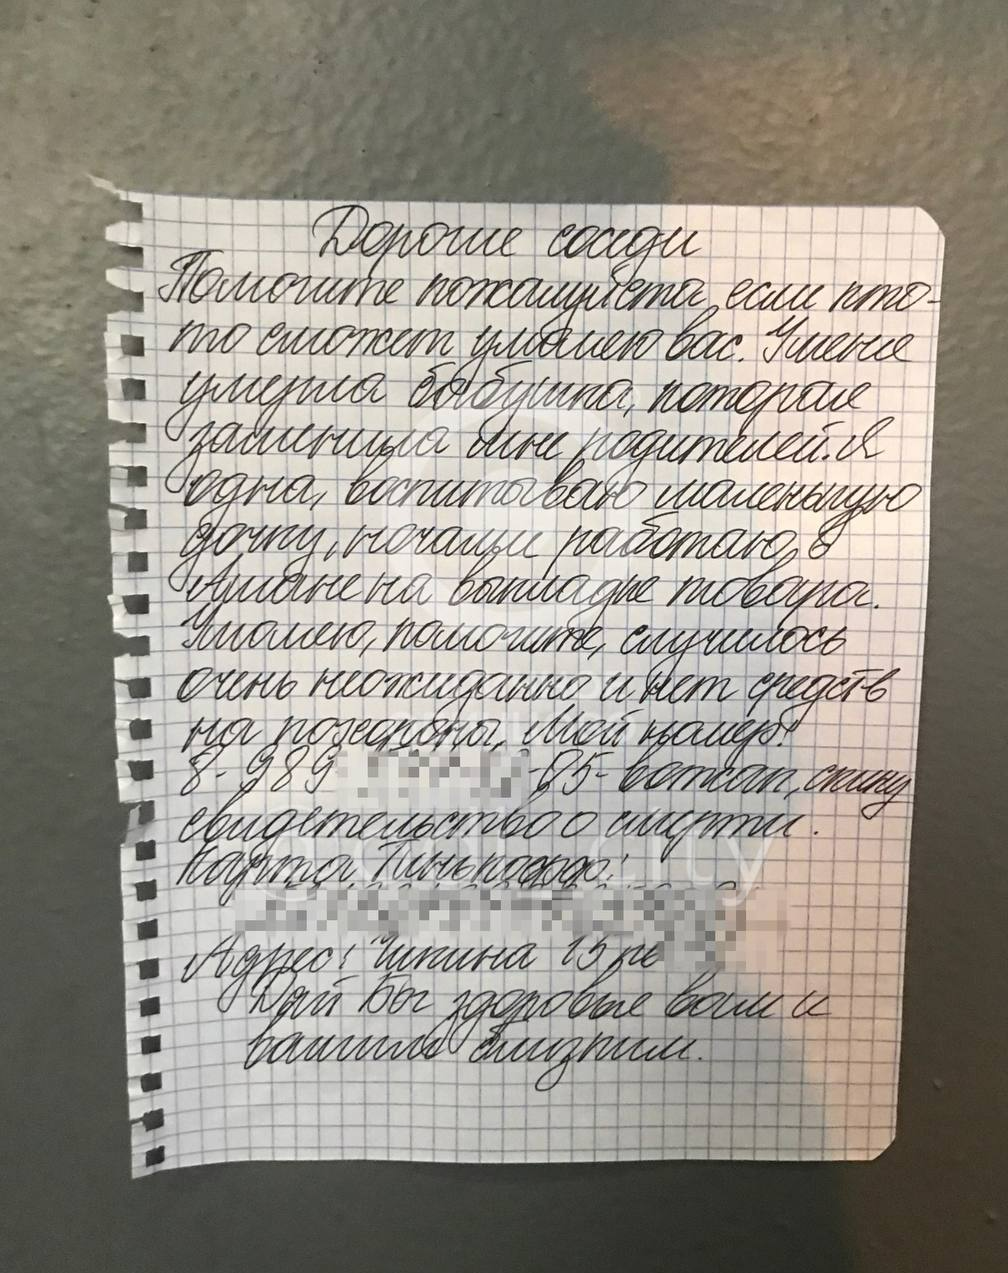 Дорогие соседи
Помогите пожалуйста, если кто-
то сможет умоляю вас. У меня
умерла бабушка, которая
заменила мне родителей. Я
одна, воспитываю маленькую
дочку, ночами работаю в
на выкладке товара.
Умоляю, помогите, случилось
очень неожиданно и нет средств
на похороны, Мой номер:
8-989 -85- ватсап, скину
свидетельство о смерти.
Карта Тинькофф:
Адрес: 15
Дай Бог здоровье вам и
вашим близким.
city